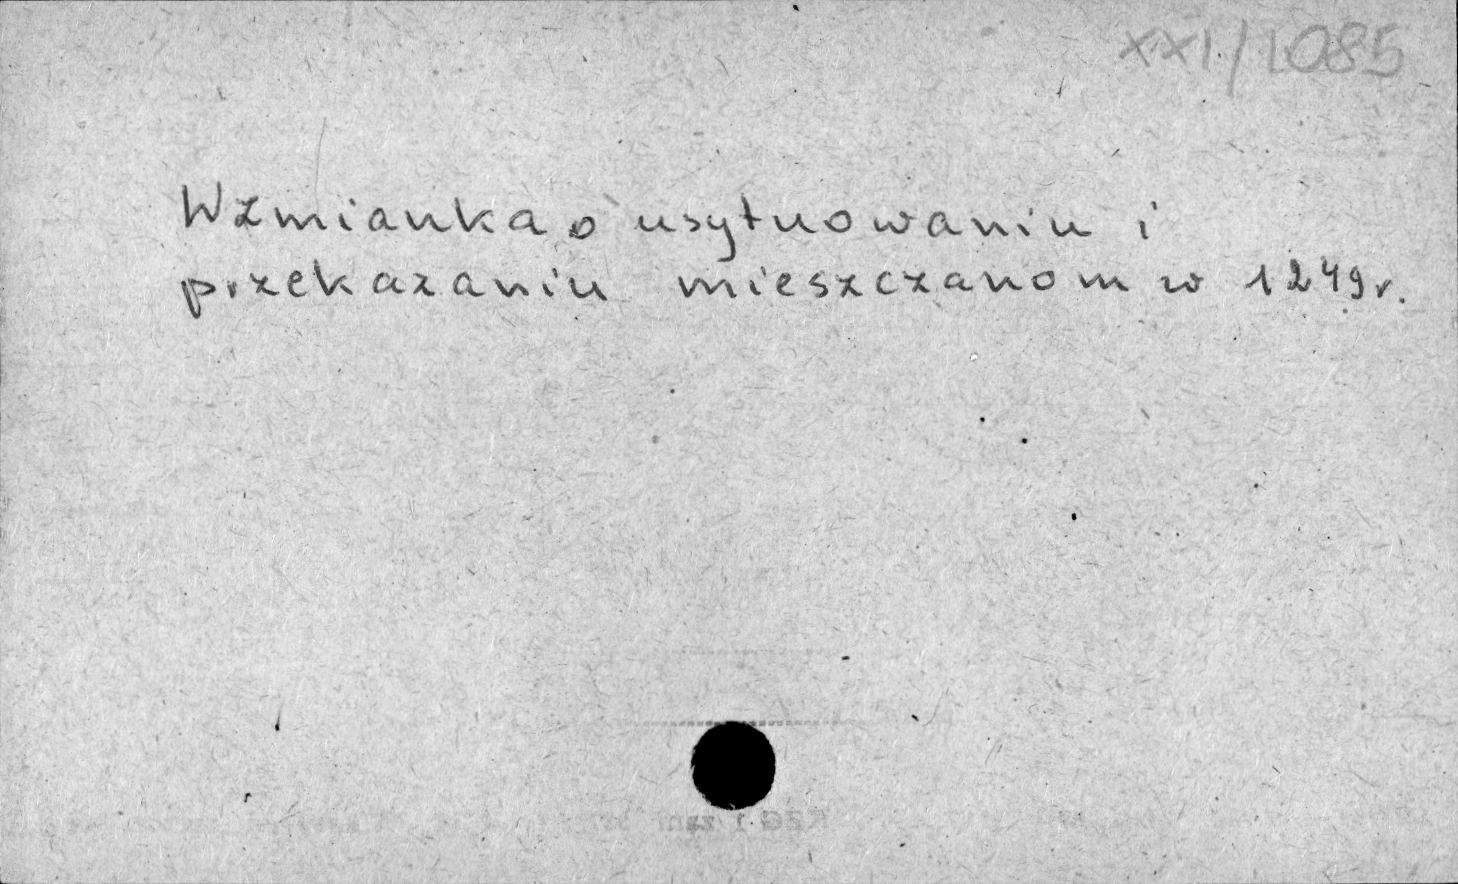 XXI/1085
Wzmianka o usytuowaniu i
przekazaniu mieszczanom w 1249 r.